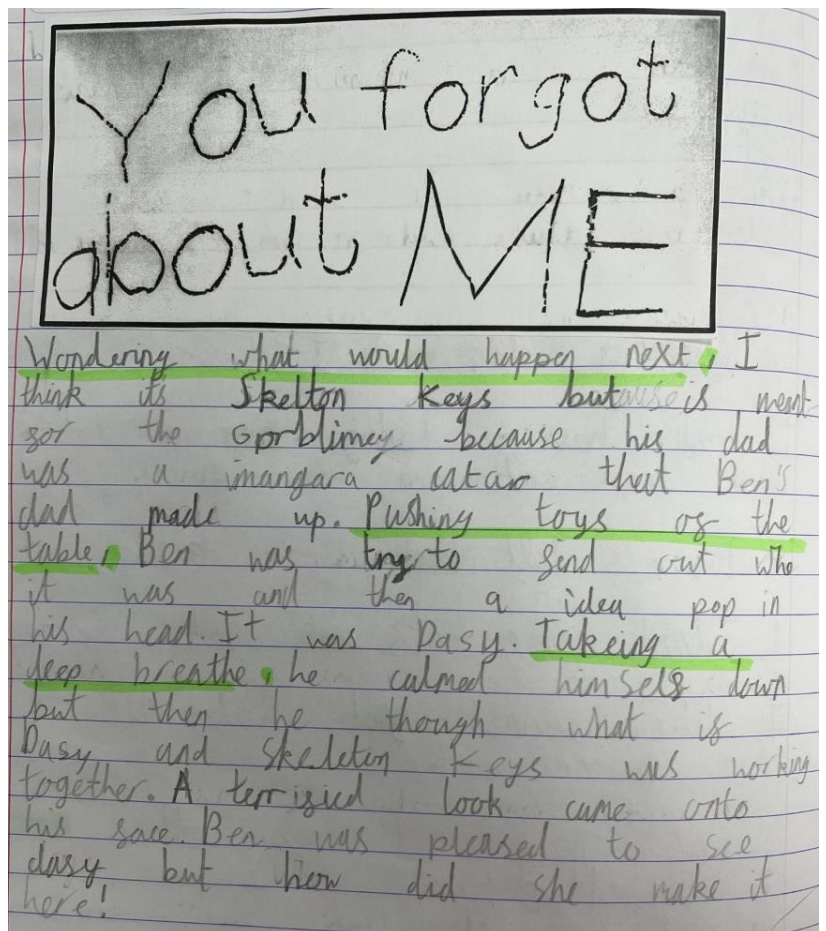 You forgot
about ME
Wondering what would happen next, I
think its Skelton Keys but is ment
for the Gorblimey because his dad
was a imangara catar that Ben's
dad made up. Pushing toys of the
table, Ben was try to find out who
it was and then a idea pop in
his head. It was Dasy. Takeing a
deep breathe, he calmed himself down
but then he though what if
Dasy and Skeleton Keys was working
together. A terrified look came onto
his face. Ben was pleased to see
dasy but how did she make it
here!